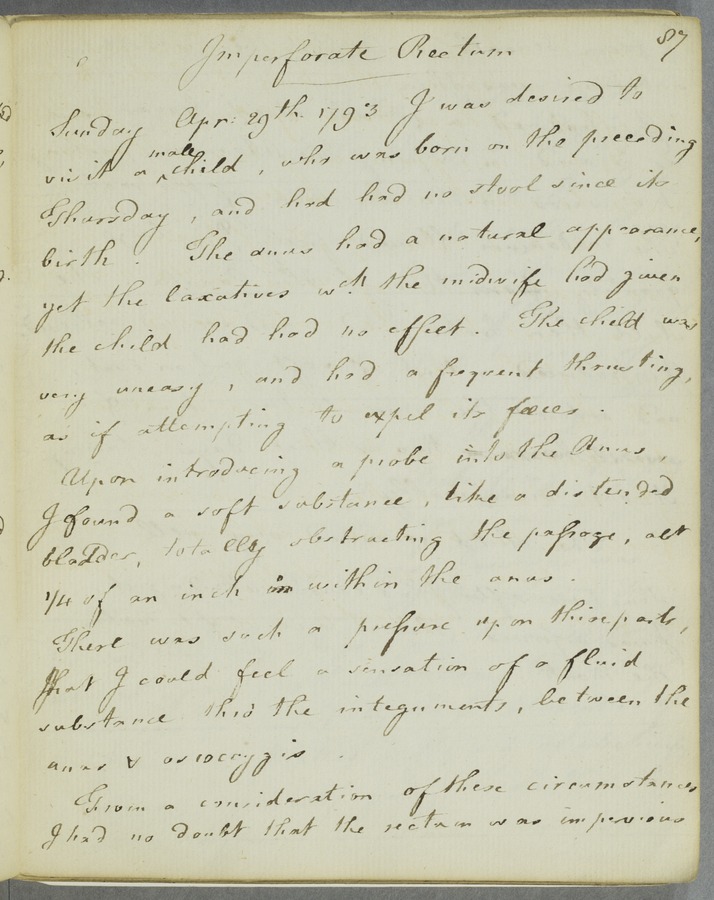 87
Imperforate Rectum
Sunday Apr: 29th. 1793 I was desired to
visit a male child, who was born on the preceding
Thursday, and had had no stool since its
birth. The anus had a natural appearance,
yet the laxatives wch. the midwife had given
the child had had no effect. The child was
very uneasy, and had a frequent thrusting,
as if attempting to expel its fæces.
Upon introducing a probe into the Anus,
I found a soft substance, like a distended
bladder, totally obstructing the passage, abt
1/4 of an inch within the anus.
There was such a pressure upon these parts,
that I could feel a sensation of a fluid
substance thro' the integuments, between the
anus & os coccygis.
From a consideration of these circumstances
I had no doubt that the rectum was impervious